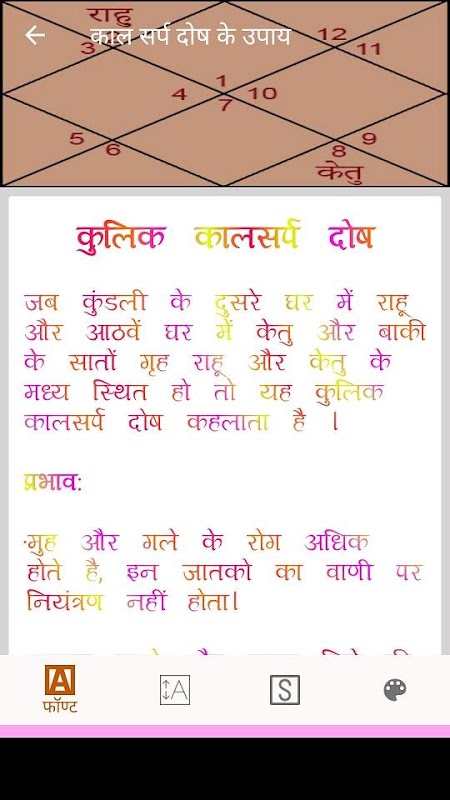 राहु
काल सर्प दोष के उपाय
12
3
11
1
4
10
7
5
9
6
8
केतु
कुलिक कालसर्प दोष
जब कुंडली के दुसरे घर में राहू
और आठवें घर में केतु और बाकी
के सातों गृह राहू और केतु के
मध्य स्थित हो तो यह कुलिक
कालसर्प दोष कहलाता है ।
प्रभाव:
·मुह और गले के रोग अधिक
होते है, इन जातको का वाणी पर
नियंत्रण नहीं होता।
A
A
S
फॉण्ट